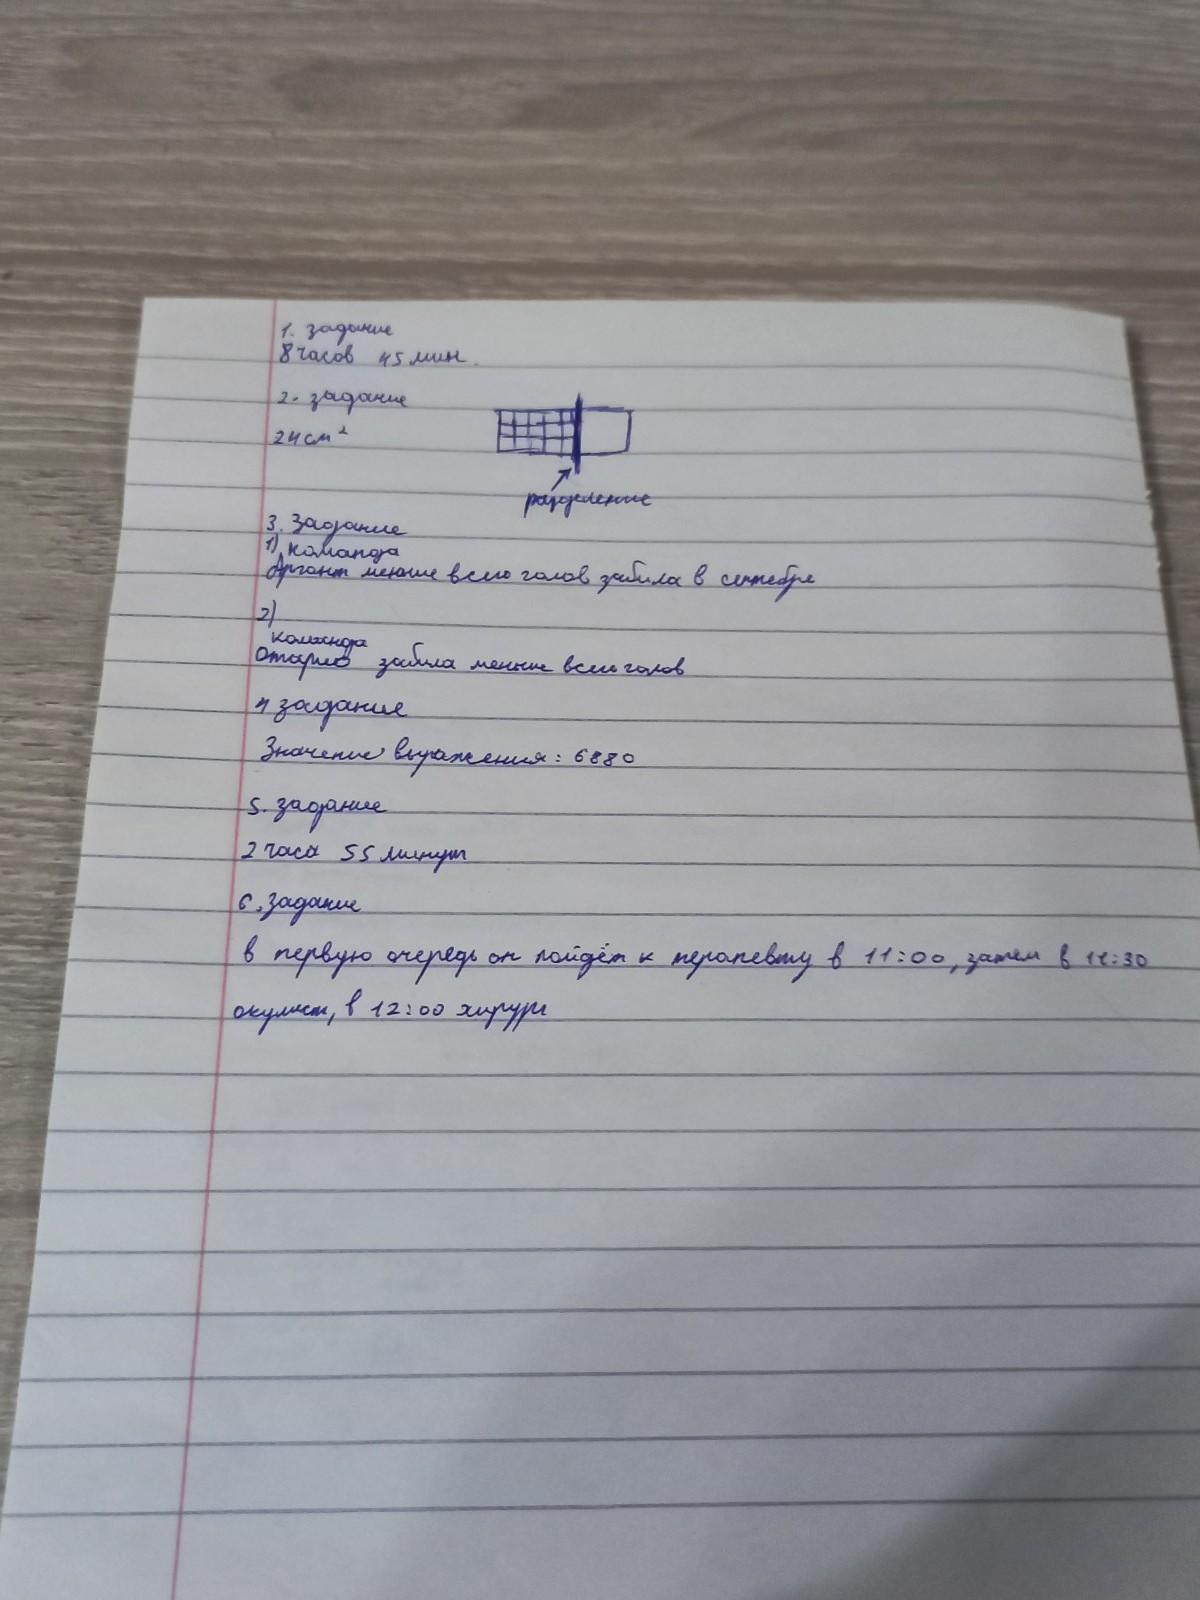 1. задание
8 часов 45 мин.
2. задание
24 см²
разделение
3. Задание
1) команда
Аргант меньше всего голов забила в сентябре
2)
команда
Отарио забила меньше всего голов
4 задание
Значение выражения: 6880
5. задание
2 часа 55 минут
6. задание
в первую очередь он пойдёт к терапевту в 11:00, затем в 11:30
окулист, в 12:00 хирург